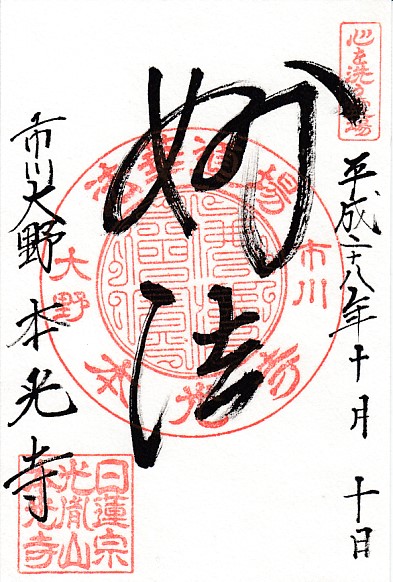 心を洗う道場
平成二十八年十月 十日
妙法
華道場
市川
大野
本光寺
市川大野 本光寺
日蓮宗
光胤山
本光寺